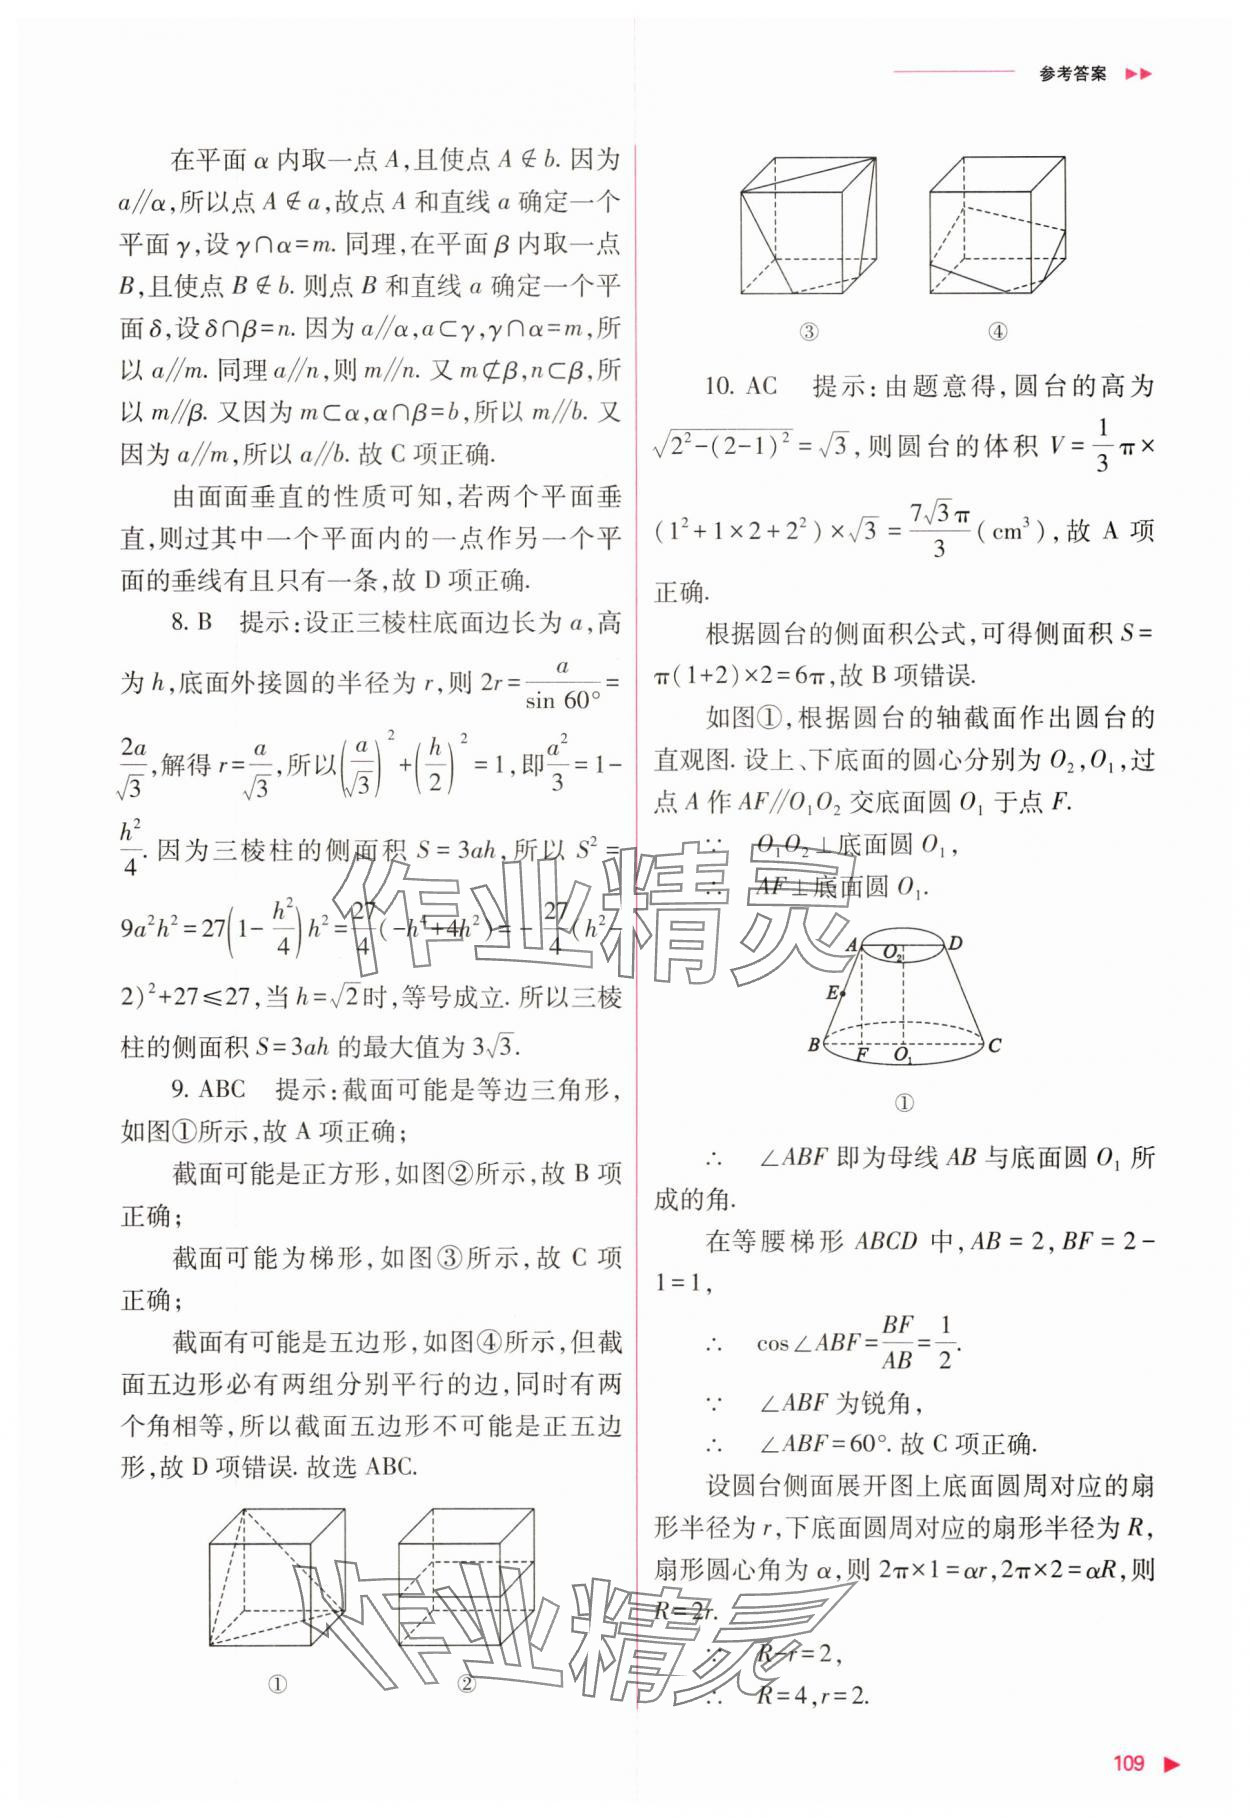 参考答案
在平面 α 内取一点 A,且使点 A∉b. 因为
a∥α,所以点 A∉a,故点 A 和直线 a 确定一个
平面 γ,设 γ∩α=m. 同理,在平面 β 内取一点
B,且使点 B∉b. 则点 B 和直线 a 确定一个平
面 δ,设 δ∩β=n. 因为 a∥α,a⊂γ,γ∩α=m,所
以 a∥m. 同理 a∥n,则 m∥n. 又 m⊄β,n⊂β,所
以 m∥β. 又因为 m⊂α,α∩β=b,所以 m∥b. 又
因为 a∥m,所以 a∥b. 故 C 项正确.
由面面垂直的性质可知,若两个平面垂
直,则过其中一个平面内的一点作另一个平
面的垂线有且只有一条,故 D 项正确.
8. B 提示:设正三棱柱底面边长为 a,高
为 h,底面外接圆的半径为 r,则 2r=a/sin 60°=
2a/√3,解得 r=a/√3,所以(a/√3)²+(h/2)²=1,即a²/3=1-
h²/4. 因为三棱柱的侧面积 S=3ah,所以 S²=
9a²h²=27(1-h²/4)h²=27/4(-h⁴+4h²)=-27/4(h²-
2)²+27≤27,当 h=√2时,等号成立. 所以三棱
柱的侧面积 S=3ah 的最大值为 3√3.
9. ABC 提示:截面可能是等边三角形,
如图①所示,故 A 项正确;
截面可能是正方形,如图②所示,故 B 项
正确;
截面可能为梯形,如图③所示,故 C 项
正确;
截面有可能是五边形,如图④所示,但截
面五边形必有两组分别平行的边,同时有两
个角相等,所以截面五边形不可能是正五边
形,故 D 项错误. 故选 ABC.
① ②
③ ④
10. AC 提示:由题意得,圆台的高为
√(2²-(2-1)²)=√3,则圆台的体积 V=1/3π×
(1²+1×2+2²)×√3=7√3π/3(cm³),故 A 项
正确.
根据圆台的侧面积公式,可得侧面积 S=
π(1+2)×2=6π,故 B 项错误.
如图①,根据圆台的轴截面作出圆台的
直观图. 设上、下底面的圆心分别为 O₂,O₁,过
点 A 作 AF∥O₁O₂ 交底面圆 O₁ 于点 F.
∵ O₁O₂⊥底面圆 O₁,
∴ AF⊥底面圆 O₁.
A O₂ D
E
B F O₁ C
①
∴ ∠ABF 即为母线 AB 与底面圆 O₁ 所
成的角.
在等腰梯形 ABCD 中,AB=2,BF=2-
1=1,
∴ cos∠ABF=BF/AB=1/2.
∵ ∠ABF 为锐角,
∴ ∠ABF=60°. 故 C 项正确.
设圆台侧面展开图上底面圆周对应的扇
形半径为 r,下底面圆周对应的扇形半径为 R,
扇形圆心角为 α,则 2π×1=αr,2π×2=αR,则
R=2r.
∵ R-r=2,
∴ R=4,r=2.
109
作业精灵
作业精灵